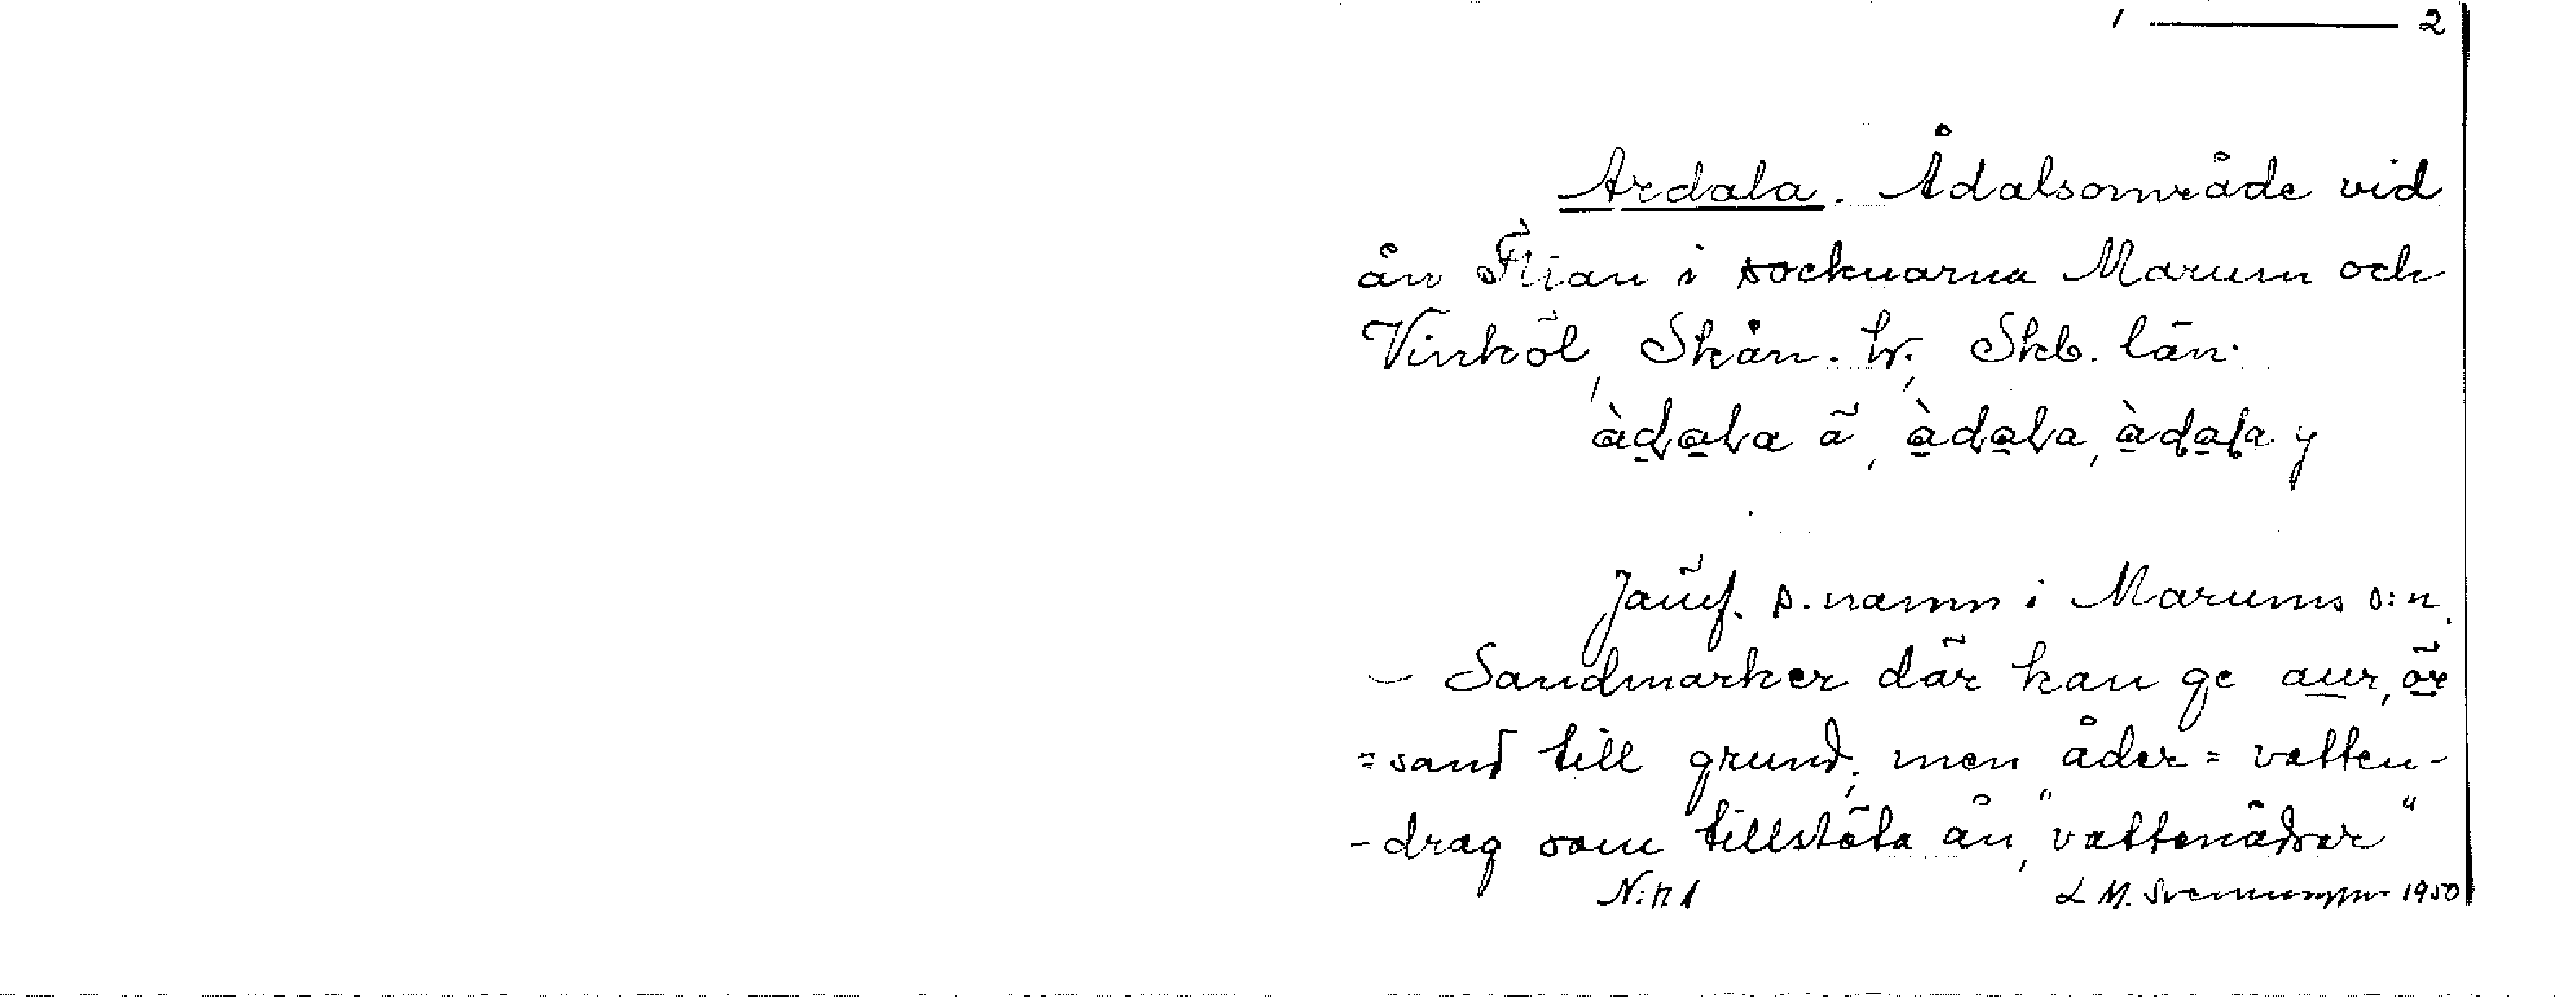 1 ——— 2
Ardala. Ådalsområde vid
ån Flian i socknarna Marum och
Vinköl, Skån. hr, Skb. län.
àdala ä, àdala, àdala y
Jämf. s. namn i Marums s:n.
– Sandmarker där kan ge aur, ör
= sand till grund; men åder = vatten-
- drag som tillstöta ån, "vattenådrar"
N:r 1 L M. Svennungsson 1950